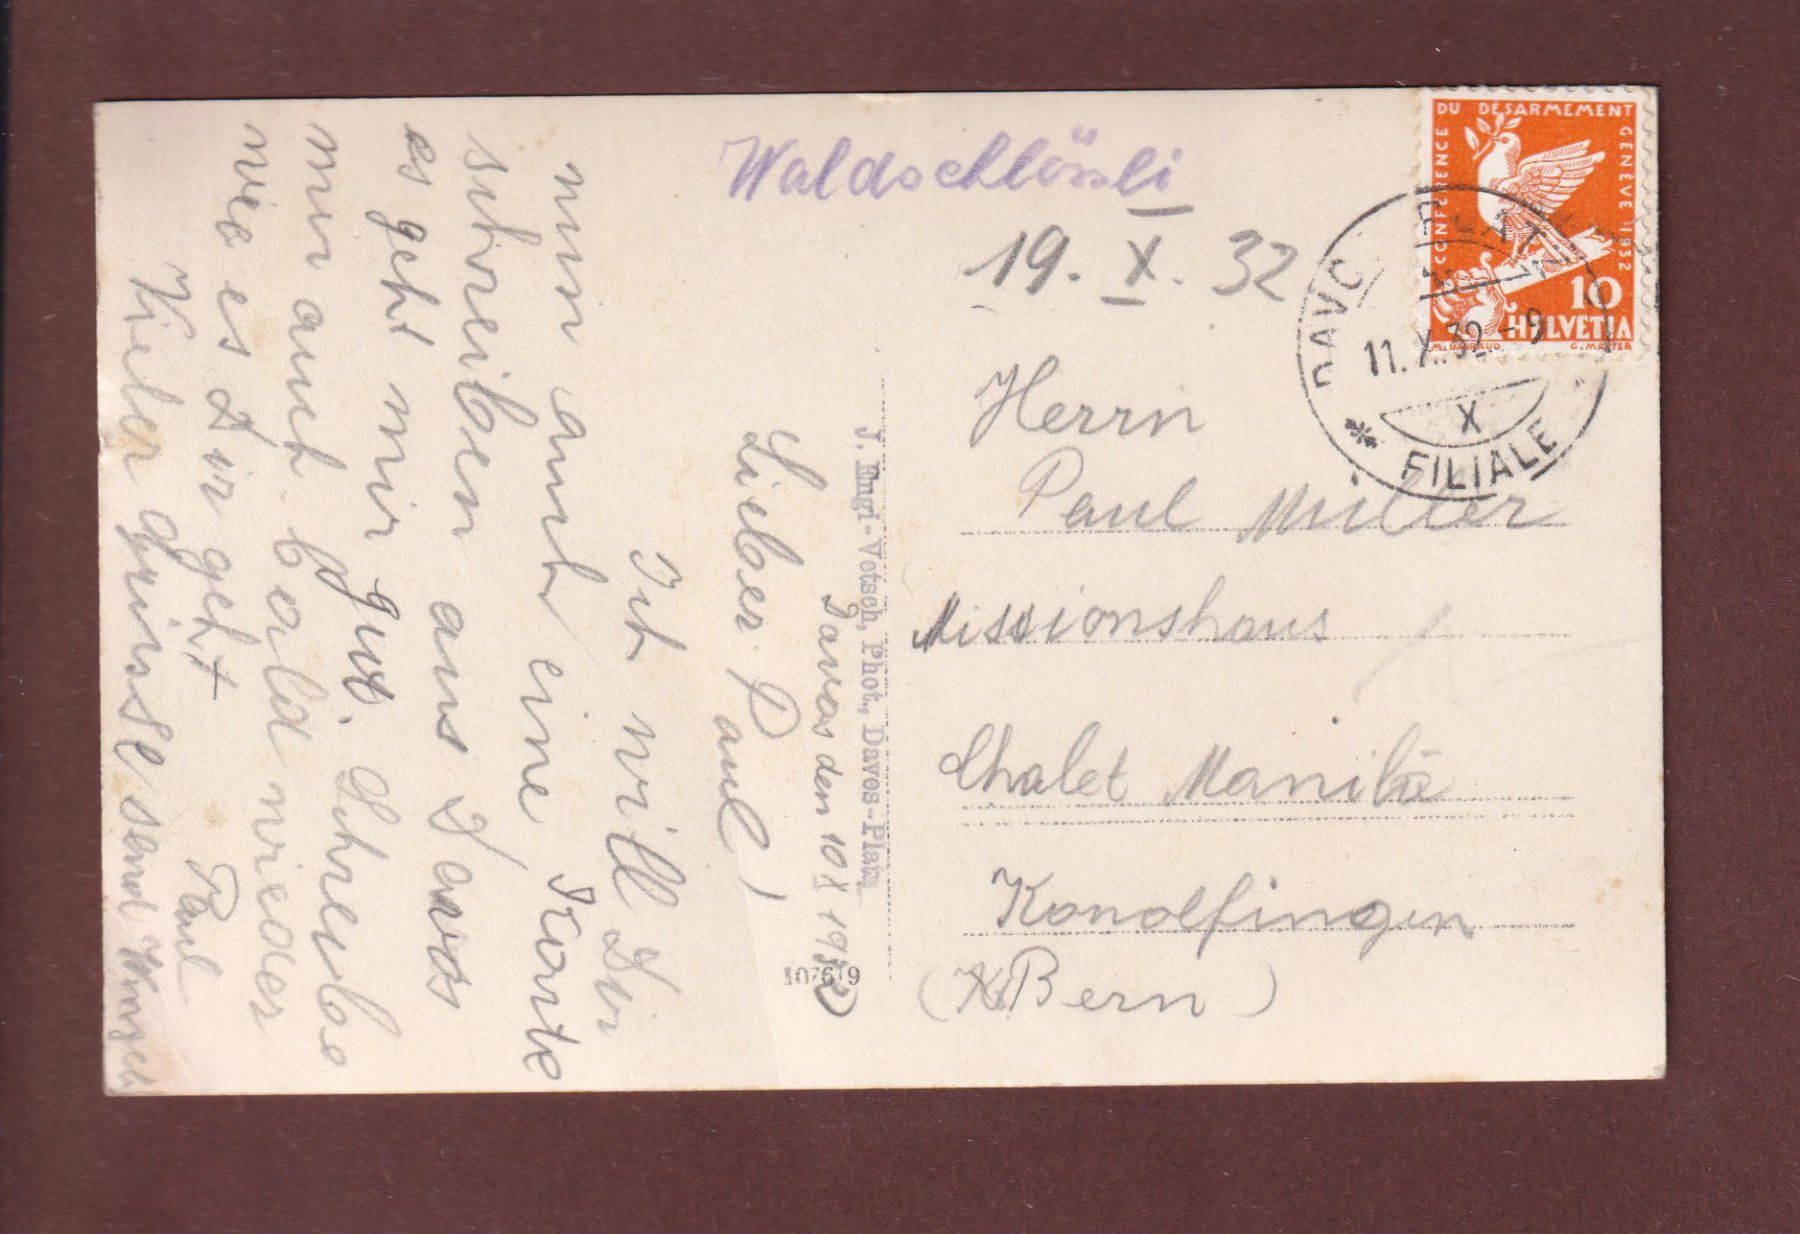 Waldschlössli
19. X. 32
CONFERENCE DU DESARMEMENT GENÈVE 1932
10
HELVETIA
DAVOS PLATZ
11. X. 32 - 9
X
FILIALE
Herrn
Paul Müller
Missionshaus
Chalet Manila
Konolfingen
(Bern)
J. Engi-Vetsch, Phot., Davos-Platz
Davos den 10 X 1932
Lieber Paul!
Ich will Dir
nun auch eine Karte
schreiben aus Davos
es geht mir gut. Schreibe
mir auch bald wieder
wie es Dir geht
Paul
Viele grüsse send